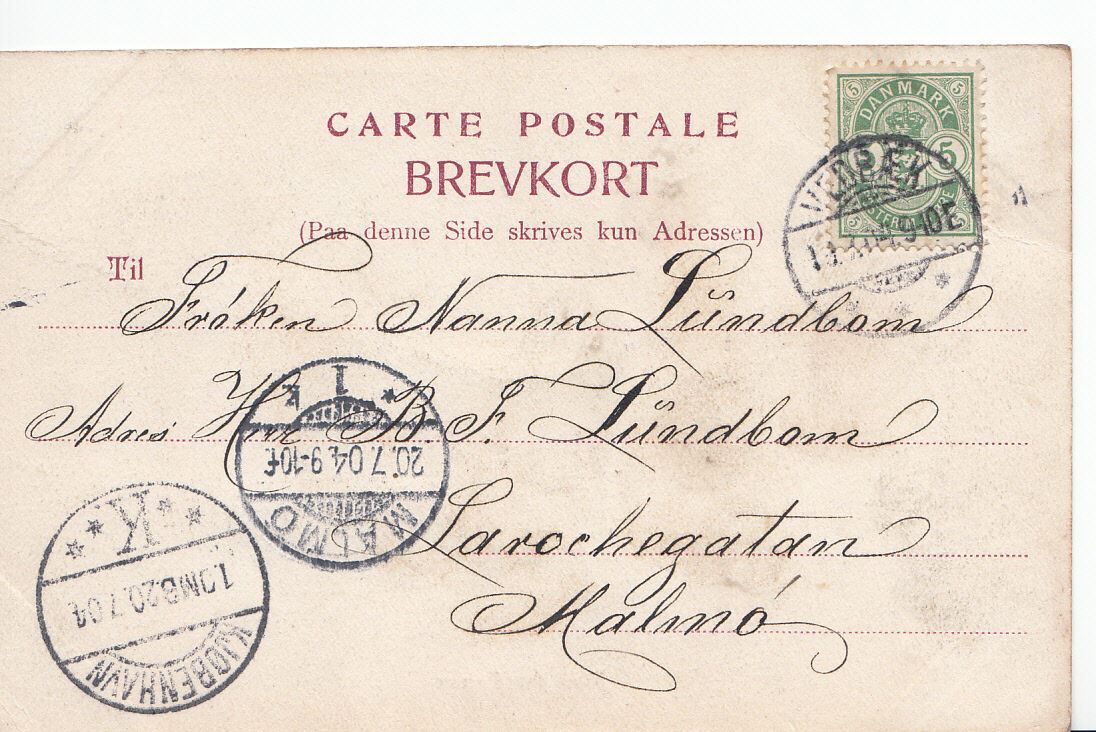 CARTE POSTALE
BREVKORT
(Paa denne Side skrives kun Adressen)
5 DANMARK 5
5
VEDBÆK
9-10E
Til
Fröken Nanna Lündbom
Adres Herr B. F. Lündbom
Larochegatan
Malmö
1
20.7.04.9-10f.
MALMÖ
K
1.OMB20.7.04.
KJØBENHAVN